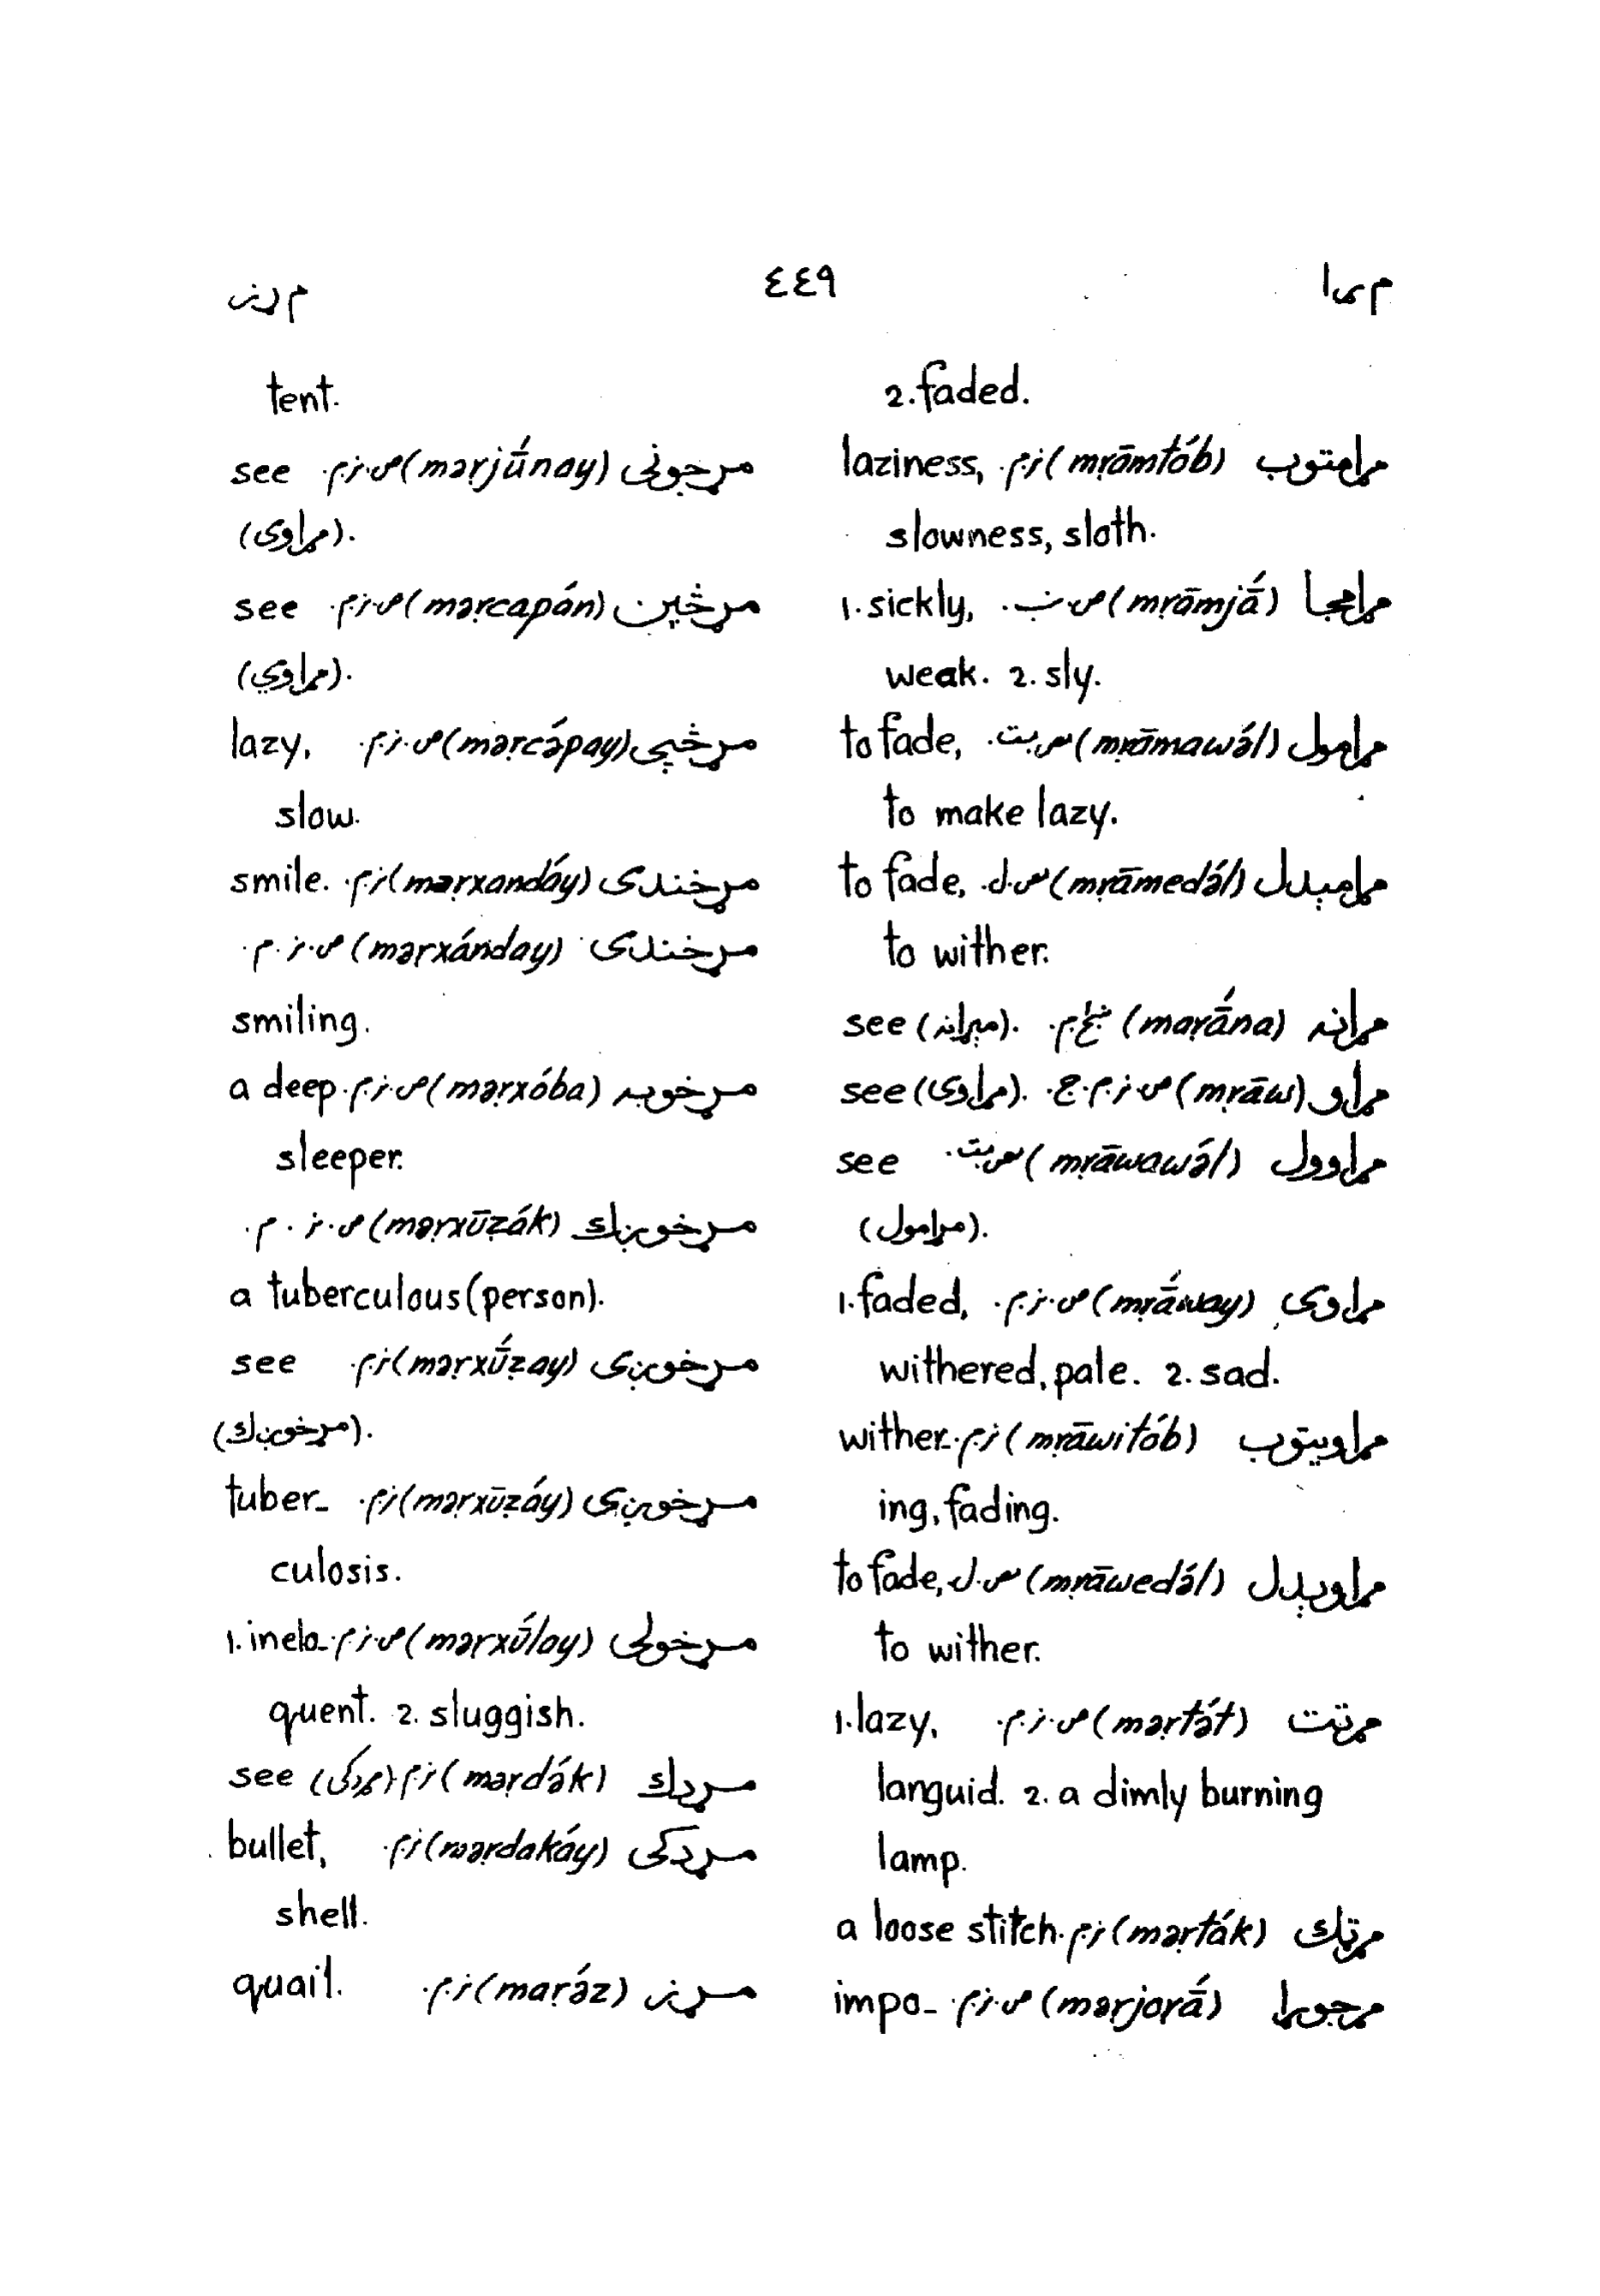 م ړ ا
٤٤٩
م ړ ز
2. faded.
مړامتوب (mṛāmtób) ز.م. laziness,
slowness, sloth.
مړامجا (mṛāmjā́) 1. sickly,
weak. 2. sly.
مړامول (mṛāmawə́l) مص.بت. to fade,
to make lazy.
مړامېدل (mṛāmedə́l) مص.ل. to fade,
to wither.
مړانه (maṛā́na) ښځ.م. see (مېړانه).
مړاو (mṛāw) ص.ز.م.ج. see (مړاوی).
مړاوول (mṛāwawə́l) مص.بت. see
(مړامول).
مړاوی (mṛā́way) ص.ز.م. 1. faded,
withered, pale. 2. sad.
مړاويتوب (mṛāwitób) ز.م. wither-
ing, fading.
مړاوېدل (mṛāwedə́l) مص.ل. to fade,
to wither.
مړتت (məṛtə́t) ص.ز.م. 1. lazy,
languid. 2. a dimly burning
lamp.
مړتک (məṛták) ز.م. a loose stitch.
مړجوړا (məṛjoṛā́) ص.ز.م. impo-
tent.
مړجونی (məṛjū́nay) ص.ز.م. see
(مړاوی).
مړڅپن (məṛcapán) ص.ز.م. see
(مړاوي).
مړڅپی (məṛcə́pay) ص.ز.م. lazy,
slow.
مړخندی (məṛxandáy) ز.م. smile.
مړخندی (məṛxánday) ص.ز.م.
smiling.
مړخوبه (məṛxóba) ص.ز.م. a deep
sleeper.
مړخوږک (məṛxūẓák) ص.ز.م.
a tuberculous (person).
مړخوږی (məṛxū́ẓay) ز.م. see
(مړخوږک).
مړخوږی (məṛxūẓáy) ز.م. tuber-
culosis.
مړخولی (məṛxū́lay) ص.ز.م. 1. inelo-
quent. 2. sluggish.
مړدک (məṛdə́k) ز.م. see (مړدکی)
مړدکی (məṛdakáy) ز.م. bullet,
shell.
مړز (maṛə́z) ز.م. quail.